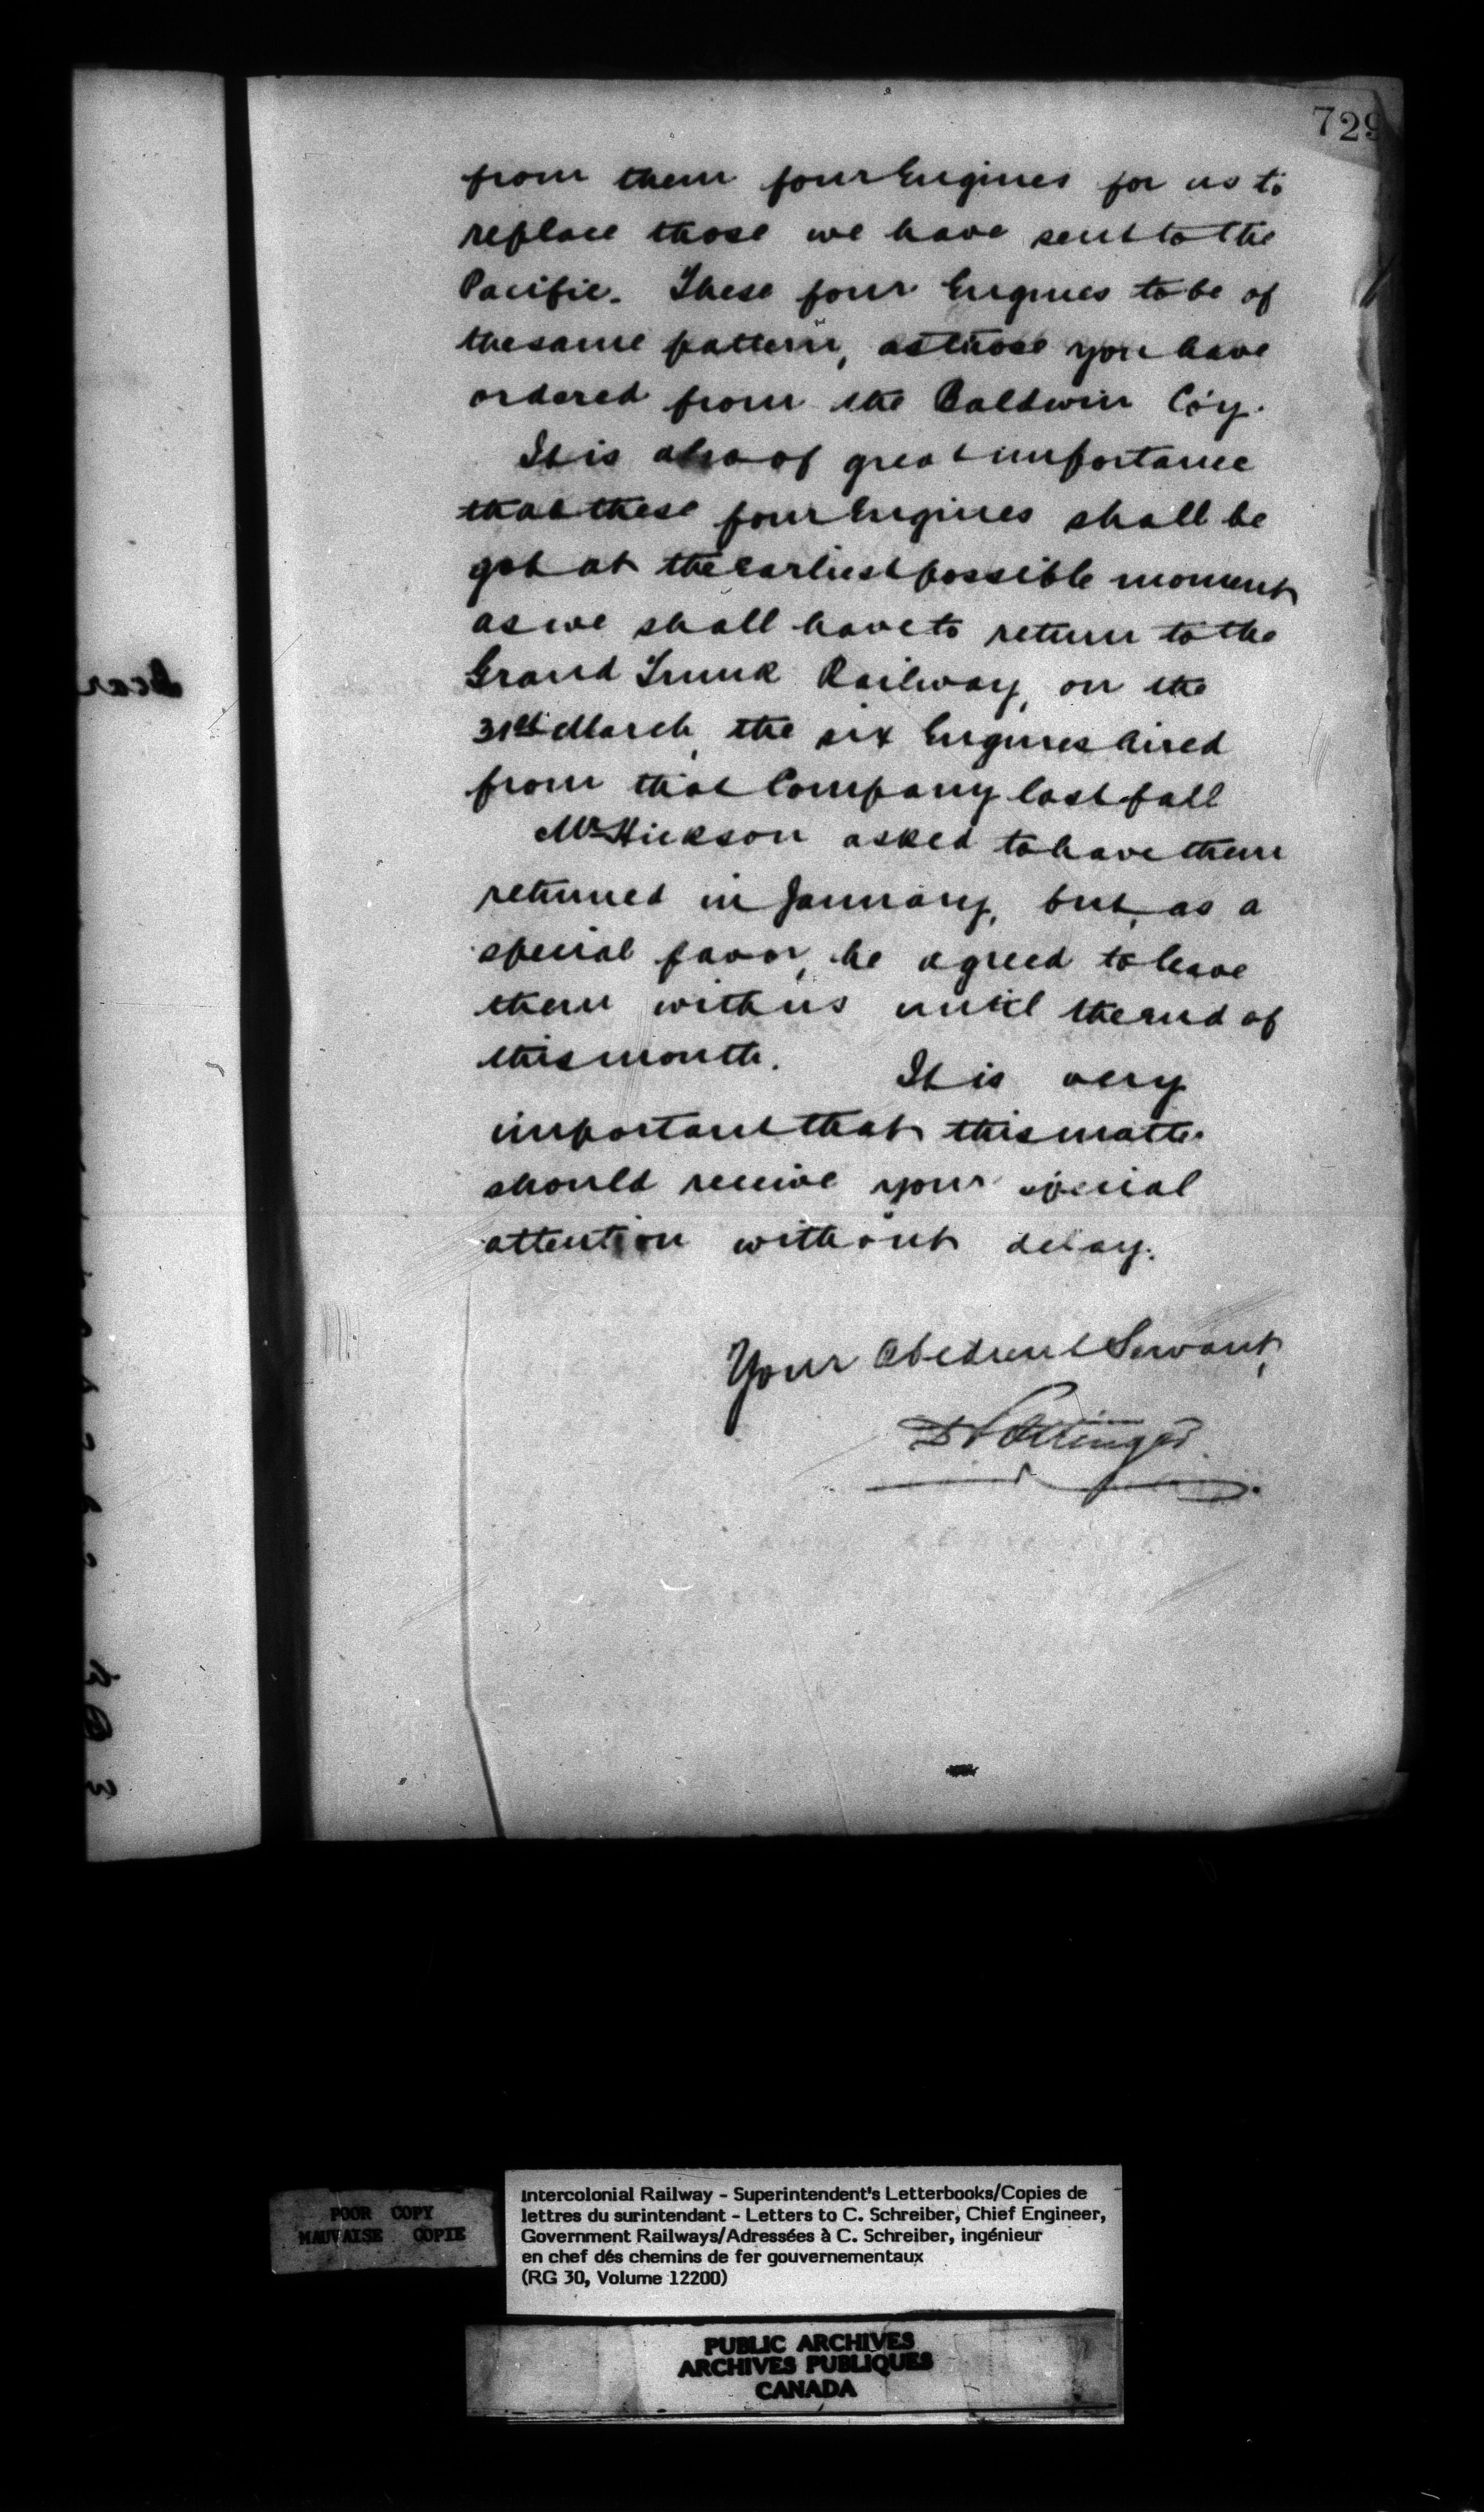 729
from them four Engines for us to
replace those we have sent to the
Pacific. These four Engines to be of
the same pattern, as those you have
ordered from the Baldwin Co'y.
It is also of great importance
that these four Engines shall be
got at the earliest possible moment
as we shall have to return to the
Grand Trunk Railway, on the
31st March, the six Engines hired
from that Company last fall
Mr Hickson asked to have them
returned in January, but, as a
special favor, he agreed to leave
them with us until the end of
this month. It is very
important that this matter
should receive your special
attention without delay.
Your Obedient Servant,
D Pottinger
POOR COPY
MAUVAISE COPIE
Intercolonial Railway - Superintendent's Letterbooks/Copies de
lettres du surintendant - Letters to C. Schreiber, Chief Engineer,
Government Railways/Adressées à C. Schreiber, ingénieur
en chef dés chemins de fer gouvernementaux
(RG 30, Volume 12200)
PUBLIC ARCHIVES
ARCHIVES PUBLIQUES
CANADA